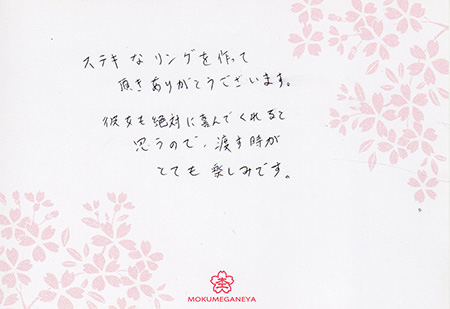 ステキなリングを作って
頂きありがとうございます。
彼女も絶対に喜んでくれると
思うので、渡す時が
とても楽しみです。
MOKUMEGANEYA